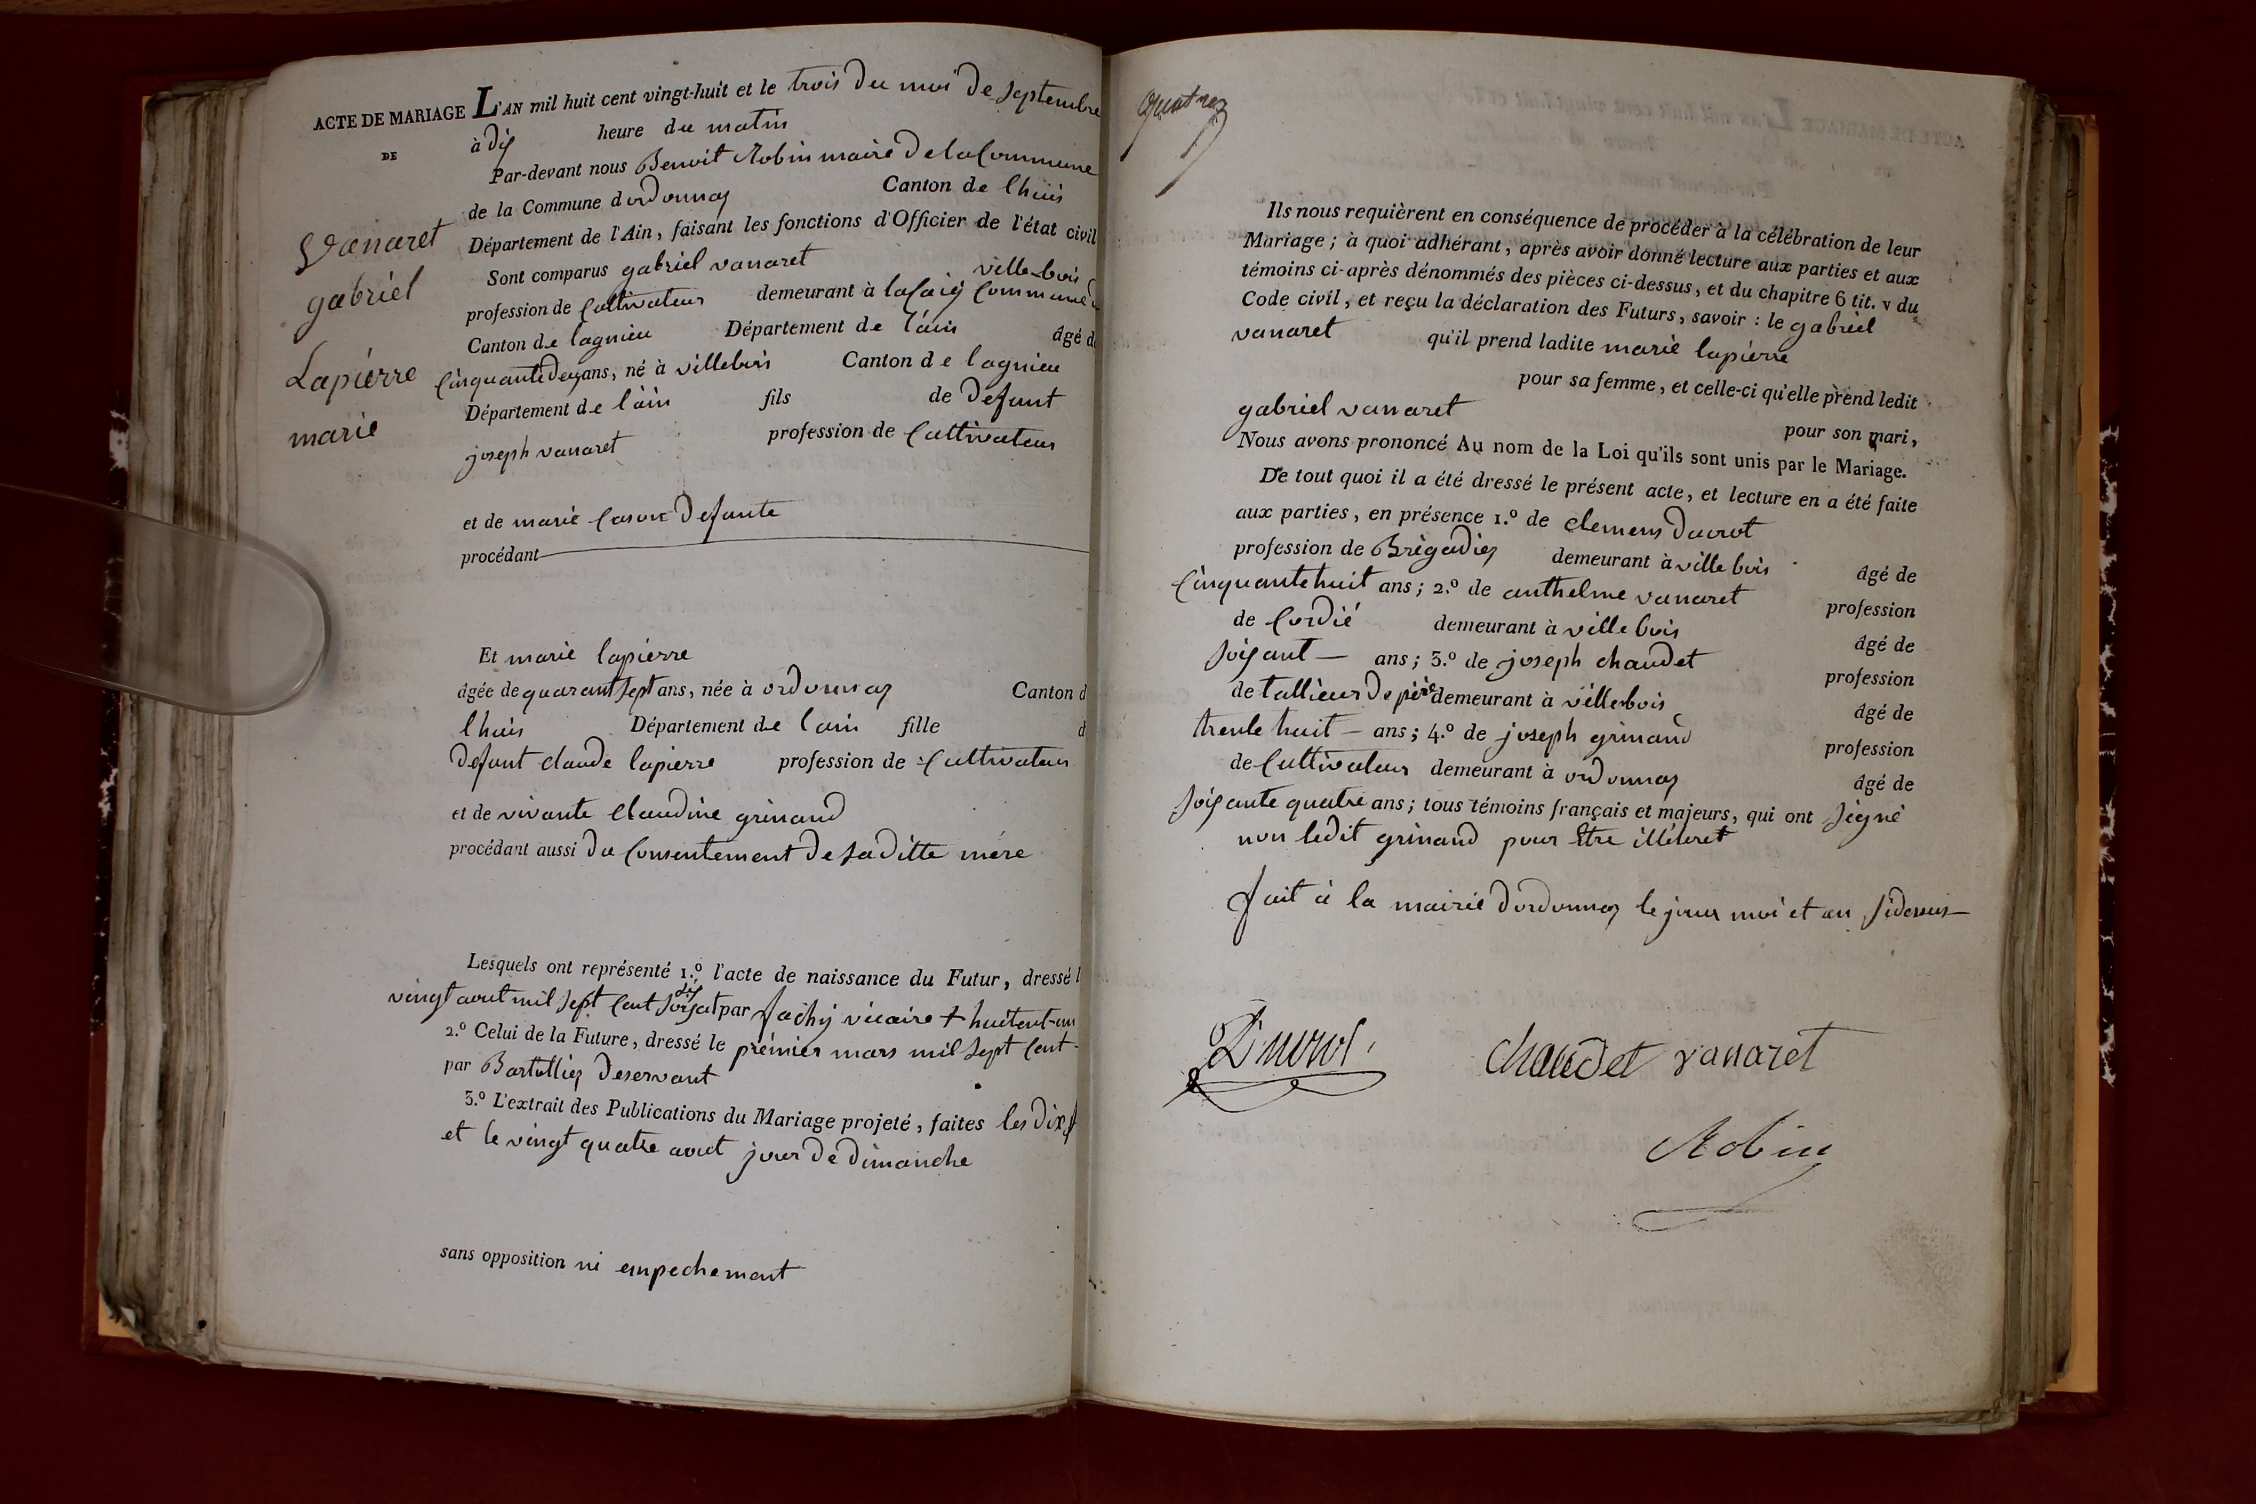 ACTE DE MARIAGE
DE
Vanaret
gabriel
Lapierre
marie
L'AN mil huit cent vingt-huit et le trois du moi de septembre
à dix heure du matin
Par-devant nous Benoit Robin maire de la Commune
de la Commune d ordonnaz Canton de lhuis
Département de l'Ain, faisant les fonctions d'Officier de l'état civil
Sont comparus gabriel vanaret
profession de Cultivateur demeurant à Commune villebois
Canton de lagnieu Département de l'ain âgé d
Cinquante deux ans, né à villebois Canton de lagnieu
Département de l'ain fils de defunt
joseph vanaret profession de Cultivateur
et de marie defunte
procédant
Et marie lapierre
âgée de quarant sept ans, née à ordonnaz Canton d
lhuis Département de l ain fille d
defunt claude lapierre profession de Cultivateur
et de vivante Claudine grinand
procédant aussi du Consentement de saditte mére
Lesquels ont représenté 1.º l'acte de naissance du Futur, dressé l
vingt aout mil sept Cent par vicaire +
2.º Celui de la Future, dressé le prémier mars mil sept Cent
par deservant
3.º L'extrait des Publications du Mariage projeté, faites les dix
et le vingt quatre aout jour de dimanche
sans opposition ni empechement
Ils nous requièrent en conséquence de procéder à la célébration de leur
Mariage ; à quoi adhérant, après avoir donné lecture aux parties et aux
témoins ci-après dénommés des pièces ci-dessus, et du chapitre 6 tit. v du
Code civil, et reçu la déclaration des Futurs, savoir : le gabriel
vanaret qu'il prend ladite marie lapierre
pour sa femme, et celle-ci qu'elle prend ledit
gabriel vanaret pour son mari,
Nous avons prononcé Au nom de la Loi qu'ils sont unis par le Mariage.
De tout quoi il a été dressé le présent acte, et lecture en a été faite
aux parties, en présence 1.º de clemens durot
profession de Brigadier demeurant à ville bois âgé de
Cinquante huit ans ; 2.º de anthelme vanaret profession
de Cordié demeurant à ville bois âgé de
soixant — ans ; 3.º de joseph chaudet profession
de tallieur de demeurant à villebois âgé de
trente huit — ans ; 4.º de joseph grinand profession
de Cultivateur demeurant à ordonnaz âgé de
soixante quatre ans ; tous témoins français et majeurs, qui ont signé
non ledit grinand pour être illiteret
fait à la mairie d'ordonnaz le jour moi et an sidessus
Durot chaudet vanaret
Robin